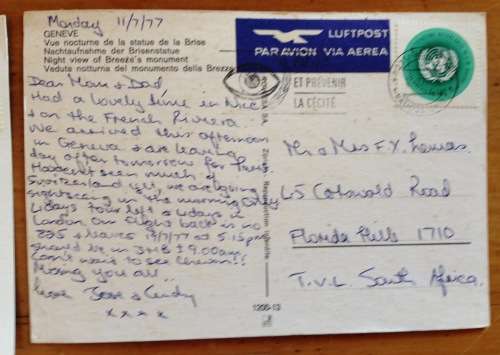 Monday 11/7/77
GENEVE
Vue nocturne de la statue de la Brise
Nachtaufnahme der Brisenstatue
Night view of Breeze's monument
Veduta notturna del monumento della Brezza
Dear Mom & Dad
Had a lovely time in Nice
& on the French Riviera
We arrived this afternoon
in Geneva & are leaving
day after tomorrow for Paris.
Haven't seen much of
Switzerland yet, we are going
sightseeing in the morning. Only
4 days tour left & 4 days in
London. Our flight back is no
235 & leaves
should be in J.H.B ± 9.00am
Can't want to see
Missing you all
love & Cindy
x x x x
LUFTPOST
PAR AVION VIA AEREA
ET PRÉVENIR
LA CÉCITÉ
Mr & Mrs F.X. Lomas.
45 Cotswold Road
Florida Hills 1710
T.V.L. South Africa.
1206-13